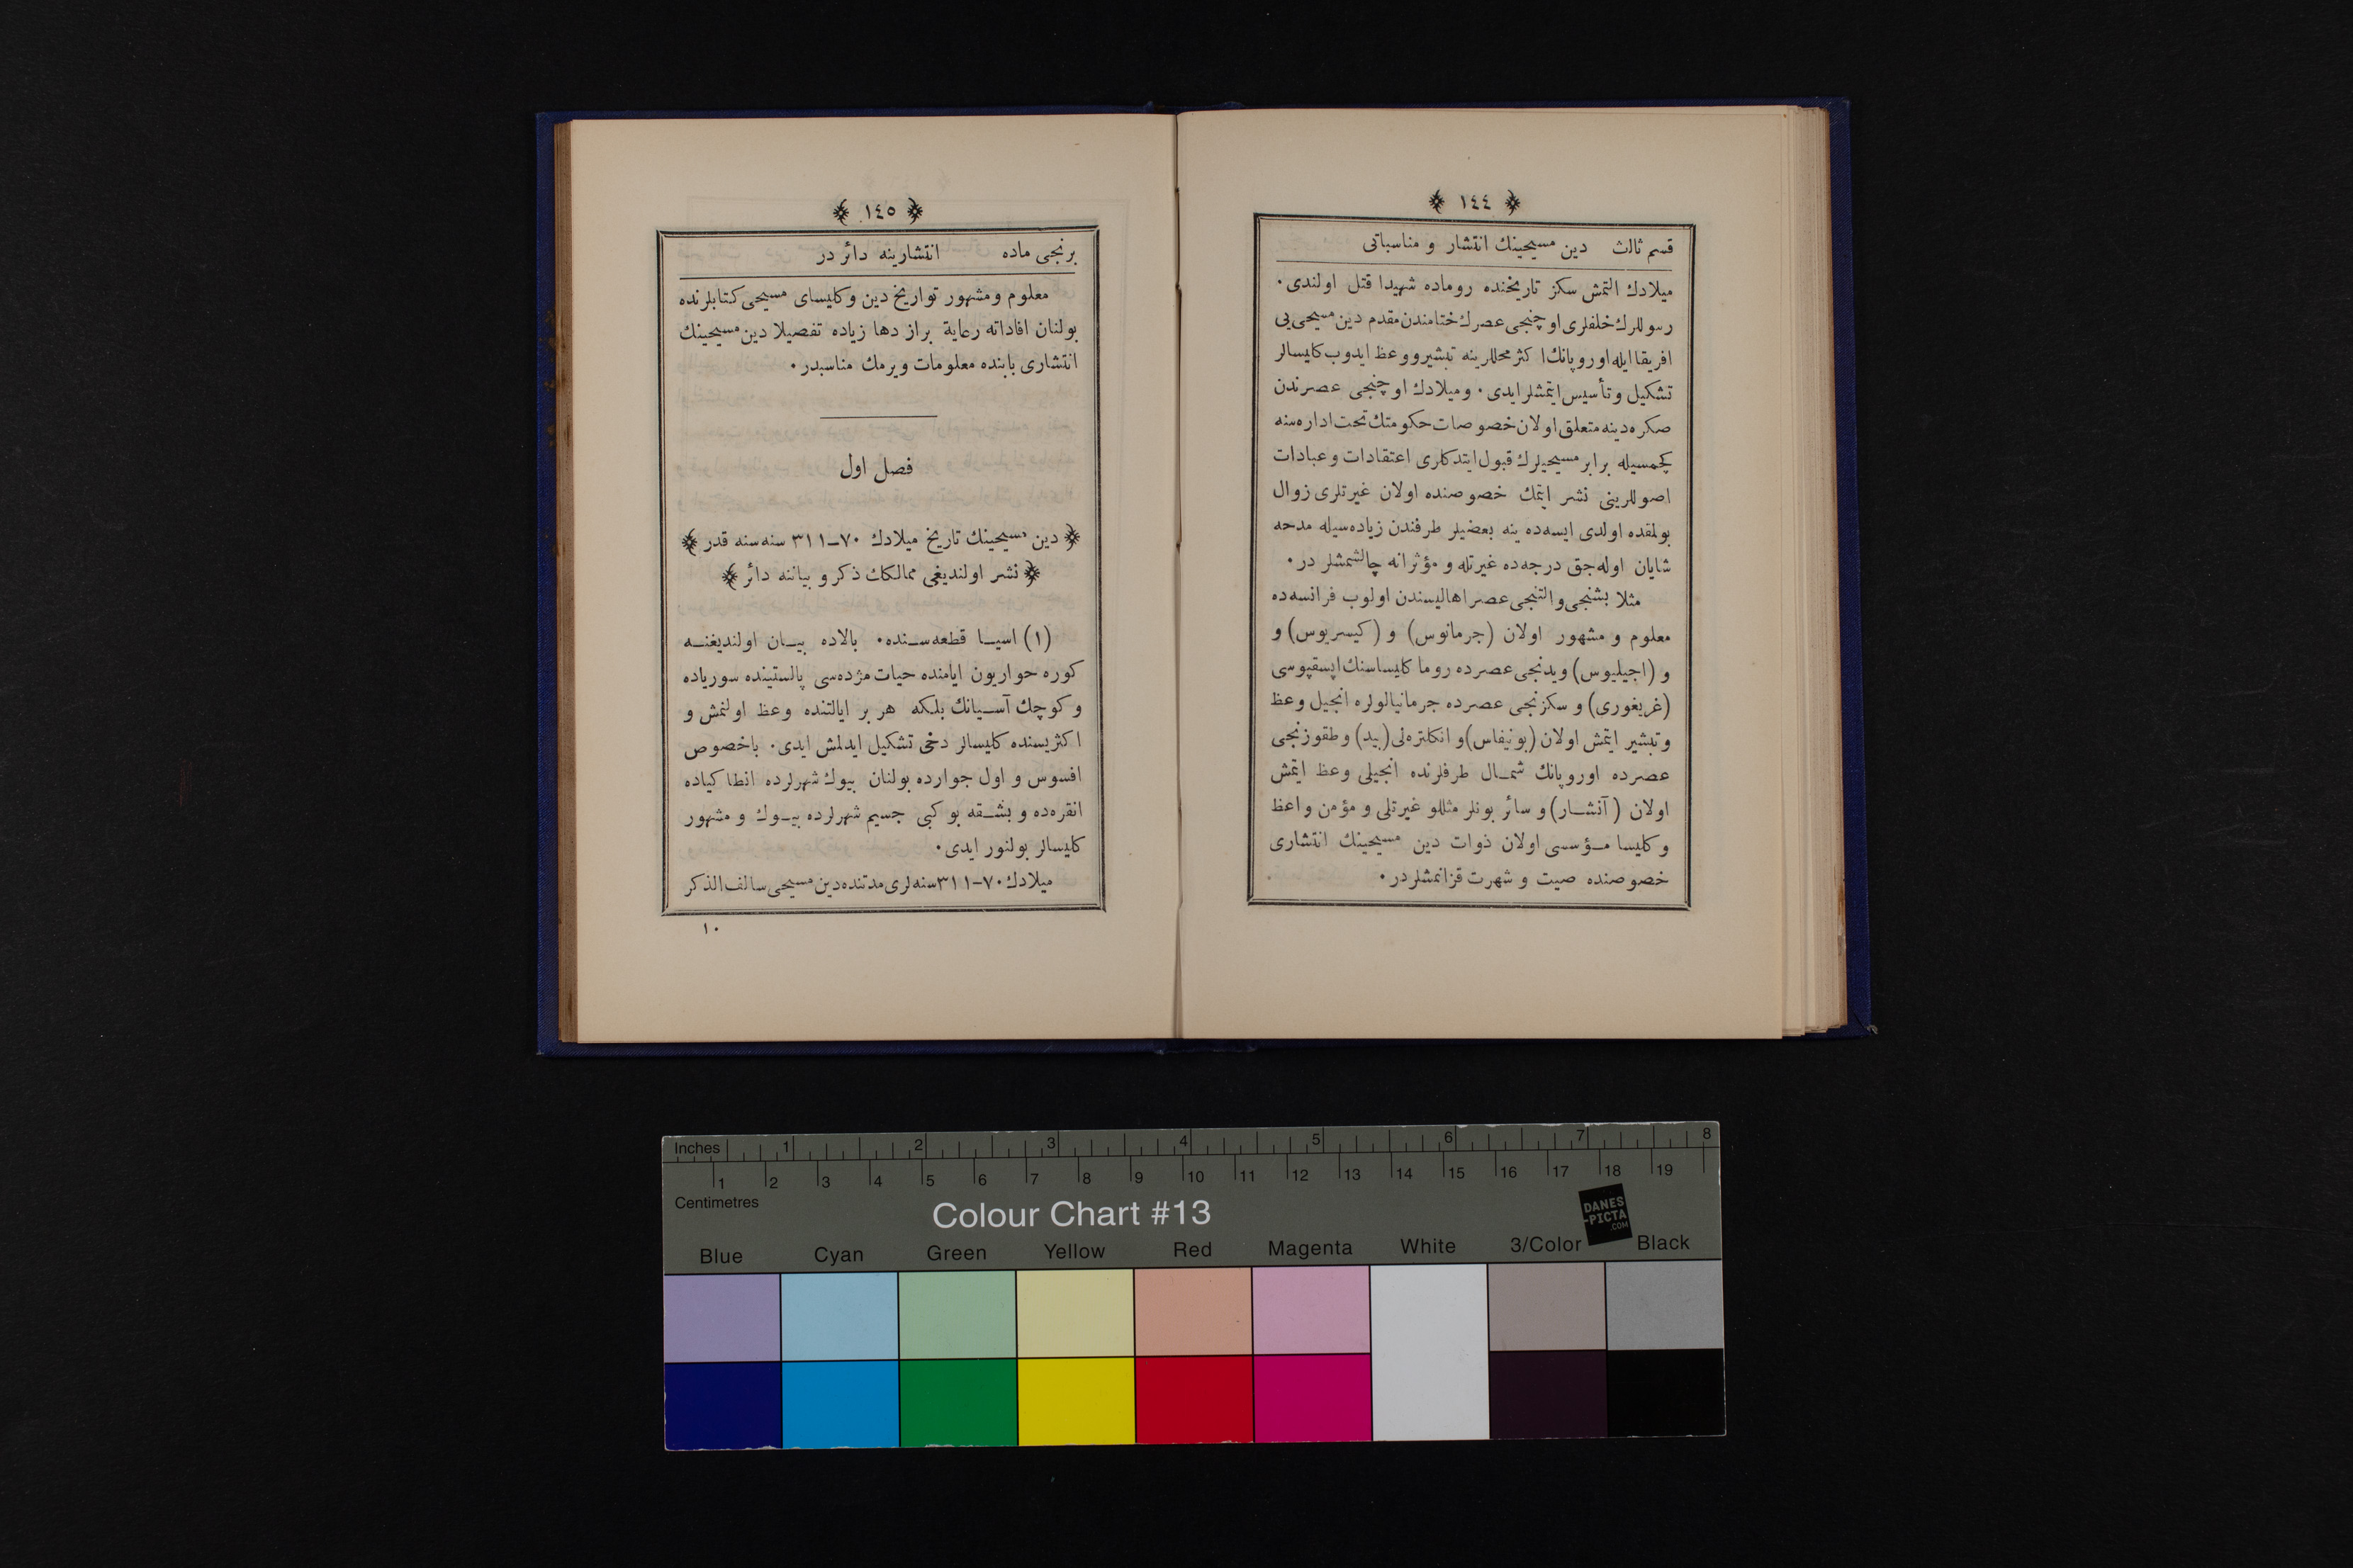 ﴿ ١٤٤ ﴾
قسم ثالث دين مسيحينك انتشار و مناسباتى
ميلادك التمش سكز تاريخنده روماده شهيدا قتل اولندى.
رسوللرك خلفلرى اوچنجى عصرك ختامندن مقدم دين مسيحى يى
افريقا ايله اوروپانك اكثر محللرينه تبشير و وعظ ايدوب كليسالر
تشكيل و تأسيس ايتمشلر ايدى. و ميلادك اوچنجى عصرندن
صكره دينه متعلق اولان خصوصات حكومتك تحت اداره سنه
كچمسيله برابر مسيحيلرك قبول ايتدكلرى اعتقادات و عبادات
اصوللرينى نشر ايتمك خصوصنده اولان غيرتلرى زوال
بولمقده اولدى ايسه ده ينه بعضيلر طرفندن زياده سيله مدحه
شايان اوله جق درجه ده غيرتله و مؤثرانه چالشمشلر در.
مثلا بشنجى و التنجى عصر اهاليسندن اولوب فرانسه ده
معلوم و مشهور اولان (جرمانوس) و (كيسريوس) و
و (اجيليوس) ويدنجى عصرده روما كليساسنك اپسقپوسى
(غريغورى) و سكزنجى عصرده جرمانيالولره انجيل وعظ
و تبشير ايتمش اولان (بونيفاس) و انكلتره لى (بيد) و طقوزنجى
عصرده اوروپانك شمال طرفلرنده انجيلى وعظ ايتمش
اولان (آنشار) و سائر بونلر مثللو غيرتلى و مؤمن واعظ
و كليسا مؤسسى اولان ذوات دين مسيحينك انتشارى
خصوصنده صيت و شهرت قزانمشلردر.
﴿ ١٤٥ ﴾
برنجى ماده انتشارينه دائر در
معلوم و مشهور تواريخ دين و كليساى مسيحى كتابلرنده
بولنان افاداته رعاية براز دها زياده تفصيلا دين مسيحينك
انتشارى بابنده معلومات ويرمك مناسبدر.
فصل اول
﴿ دين مسيحينك تاريخ ميلادك ٧٠–٣١١ سنه سنه قدر ﴾
﴿ نشر اولنديغى ممالكك ذكر و بياننه دائر ﴾
(١) اسيا قطعه سنده. بالاده بيان اولنديغنه
كوره حواريون ايامنده حيات مژده سى پالستينده سورياده
و كوچك آسيانك بلكه هر بر ايالتنده وعظ اولنمش و
اكثريسنده كليسالر دخى تشكيل ايدلمش ايدى. باخصوص
افسوس و اول جوارده بولنان بيوك شهرلرده انطاكياده
انقره ده و بشقه بو كبى جسيم شهرلرده بيوك و مشهور
كليسالر بولنور ايدى.
ميلادك ٧٠–٣١١ سنه لرى مدتنده دين مسيحى سالف الذكر
١٠
Inches 1 2 3 4 5 6 7 8
1 2 3 4 5 6 7 8 9 10 11 12 13 14 15 16 17 18 19
Centimetres
Colour Chart #13
DANES
-PICTA
.COM
Blue Cyan Green Yellow Red Magenta White 3/Color Black